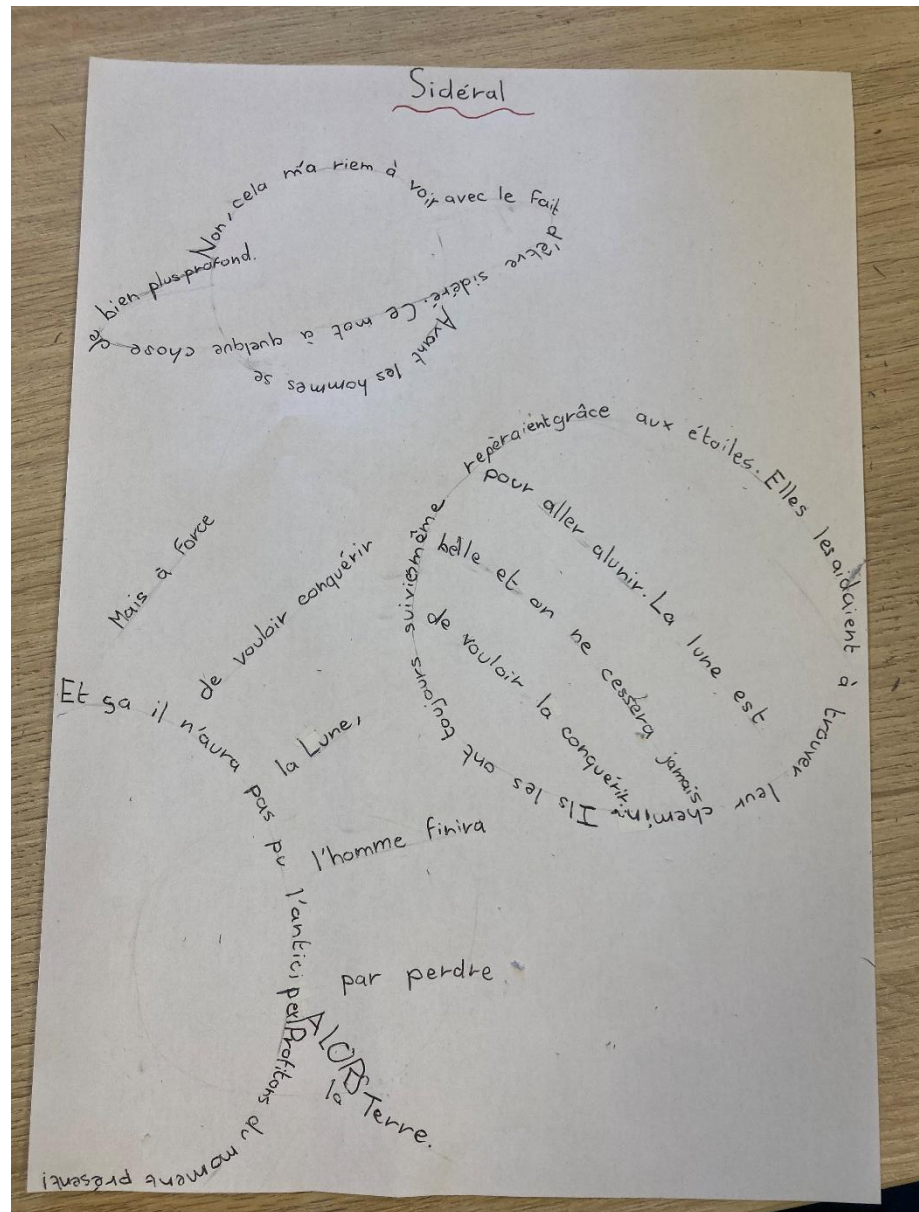 Sidéral
Non, cela n'a rien à voir avec le fait d'être sidéré. Ce mot à quelque chose de bien plus profond.
Avant les hommes se
repèraient grâce aux étoiles. Elles les aidaient à trouver leur chemin. Ils les ont toujours suivies même
pour aller alunir. La lune est
belle et on ne cessera jamais
de vouloir la conquérir.
Mais à force
de vouloir conquérir
la Lune,
l'homme finira
par perdre
la Terre.
Et ça il n'aura pas pu l'anticiper!
ALORS
Profitons du moment présent!